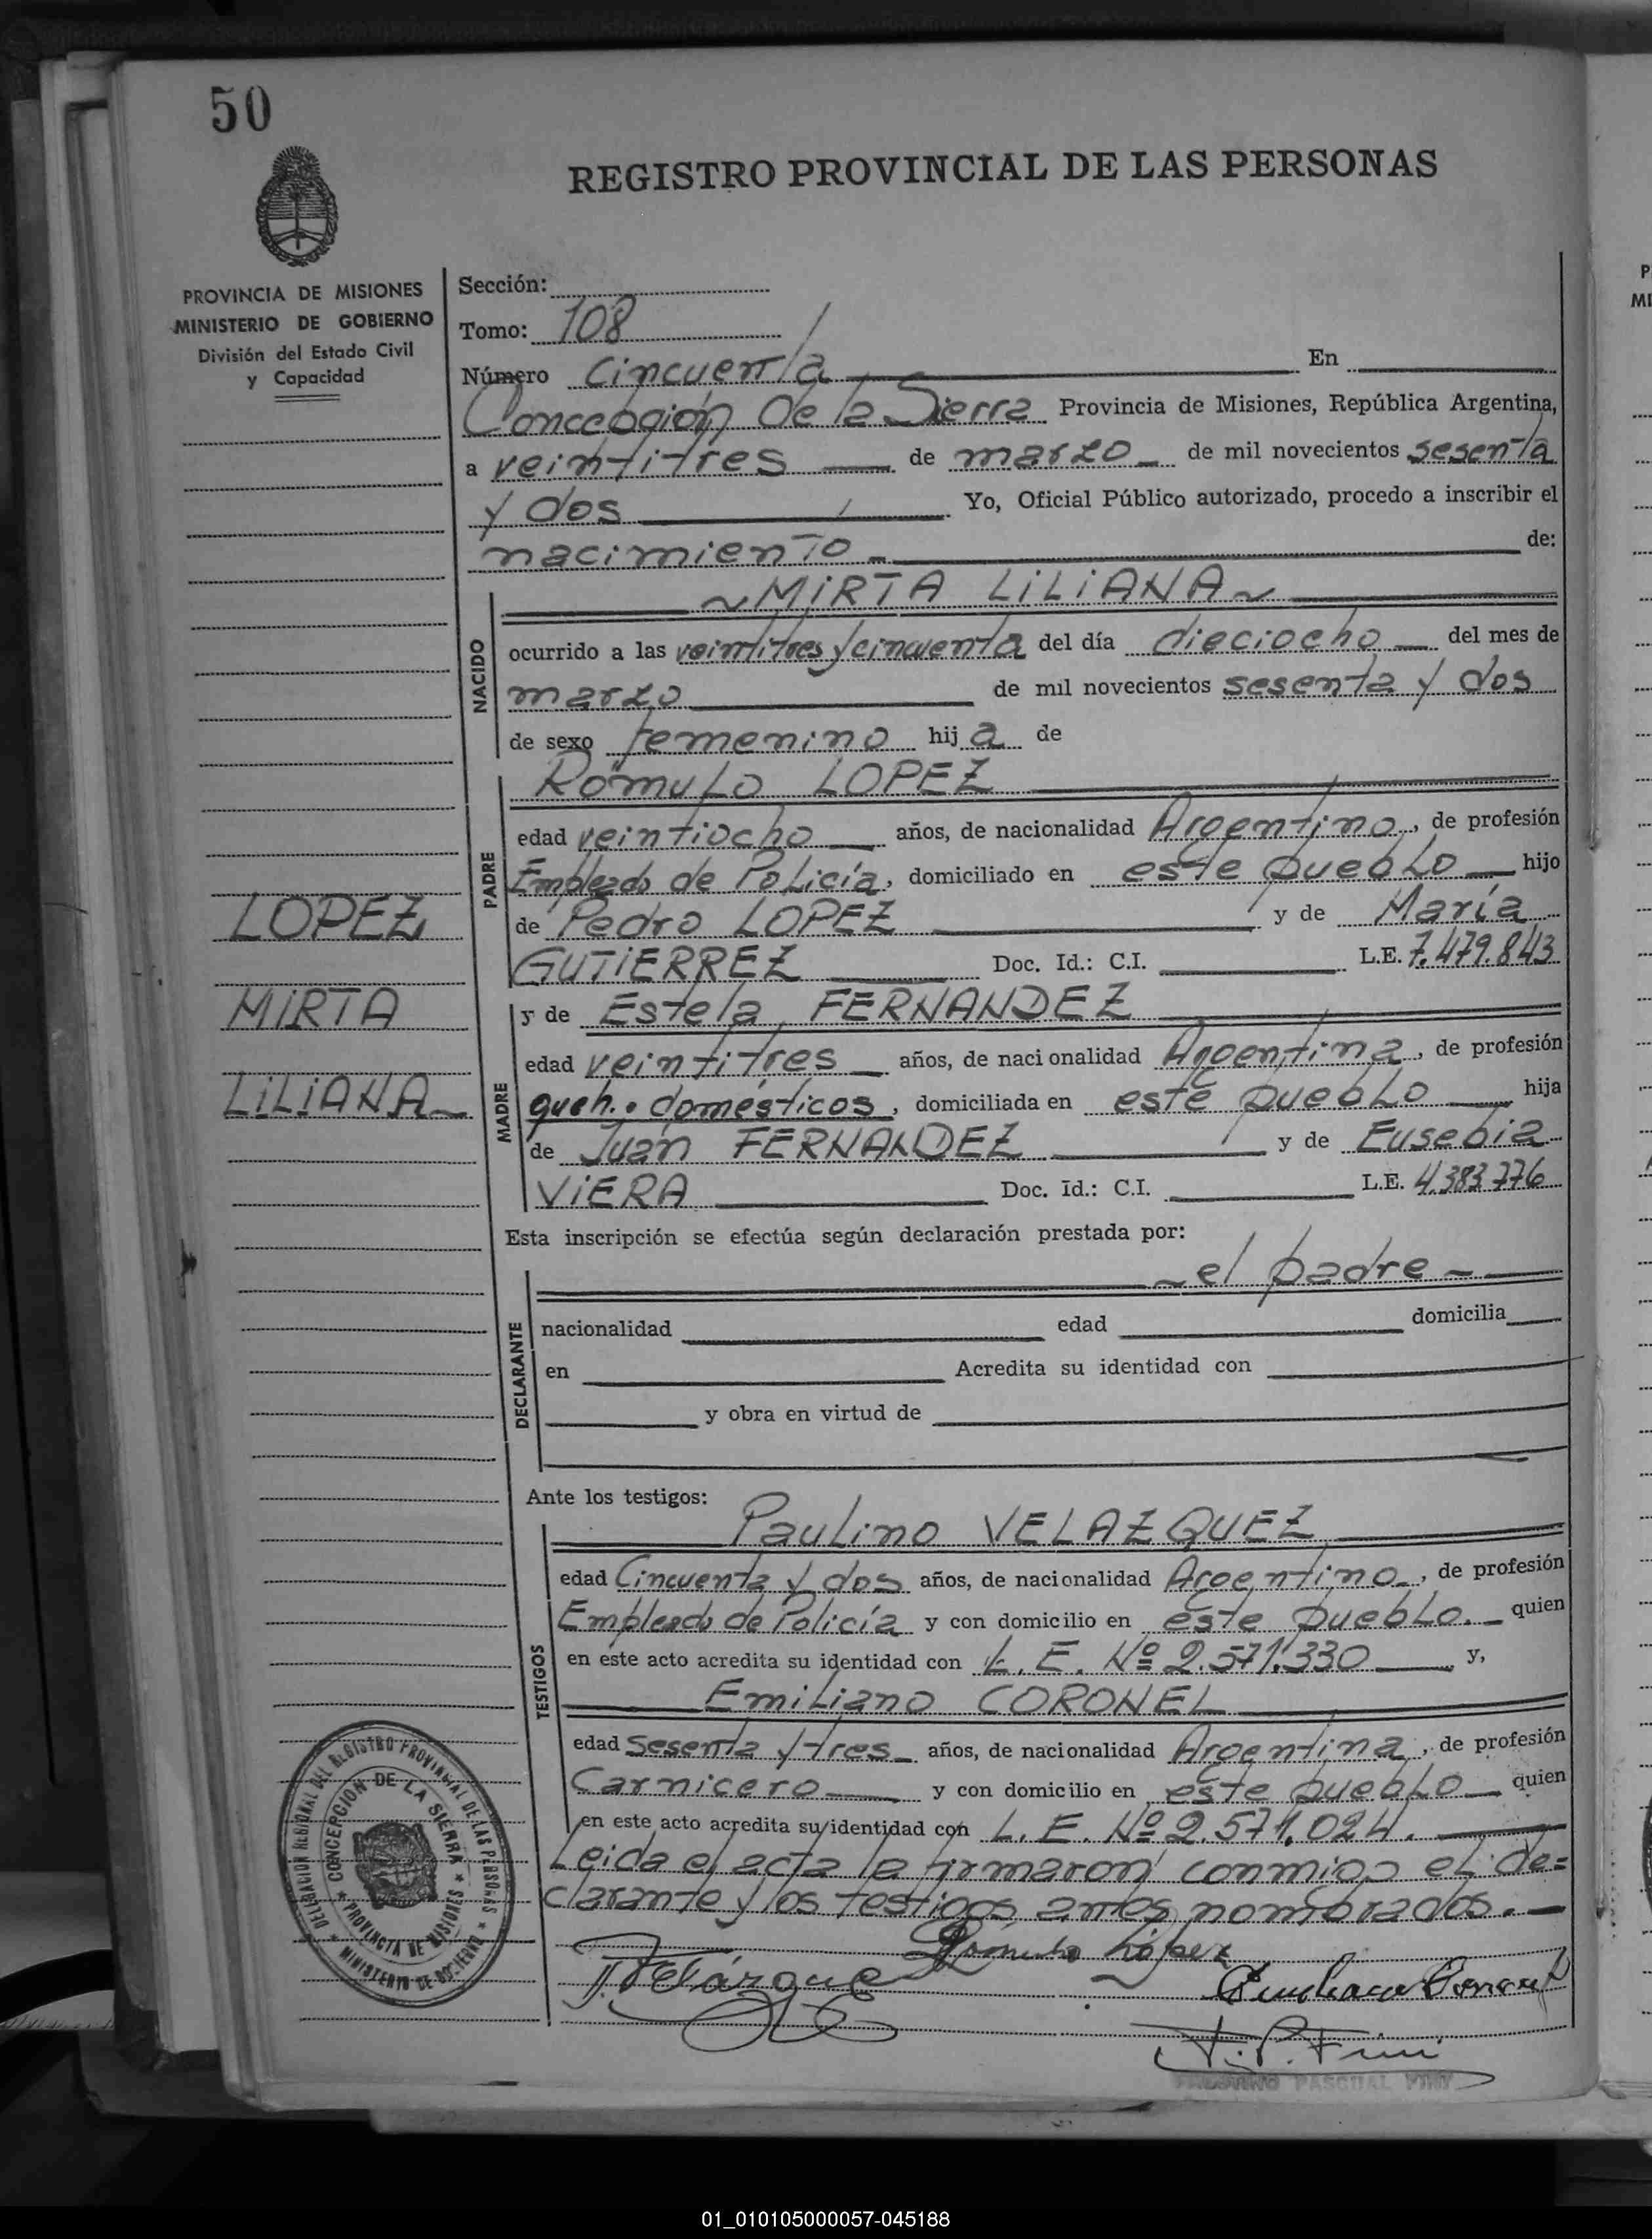 50
REGISTRO PROVINCIAL DE LAS PERSONAS
PROVINCIA DE MISIONES
MINISTERIO DE GOBIERNO
División del Estado Civil
y Capacidad
Sección:
Tomo: 108
Número Cincuenta En
Concepción de la Sierra Provincia de Misiones, República Argentina,
a veintitres de marzo de mil novecientos sesenta
y dos Yo, Oficial Público autorizado, procedo a inscribir el
nacimiento de:
MIRTA LILIANA
NACIDO
ocurrido a las veintitres y cincuenta del día dieciocho del mes de
marzo de mil novecientos sesenta y dos
de sexo femenino hij a de
Rómulo LOPEZ
PADRE
edad veintiocho años, de nacionalidad Argentino, de profesión
Empleado de Policía, domiciliado en este pueblo hijo
de Pedro LOPEZ y de María
GUTIERREZ Doc. Id.: C.I. L.E. 7.479.843
LOPEZ
MIRTA
LILIANA
y de Estela FERNANDEZ
MADRE
edad veintitres años, de nacionalidad Argentina, de profesión
queh. domésticos, domiciliada en este pueblo hija
de Juan FERNANDEZ y de Eusebia
VIERA Doc. Id.: C.I. L.E. 4.383.776
Esta inscripción se efectúa según declaración prestada por:
el padre
DECLARANTE
nacionalidad edad domicilia
en Acredita su identidad con
y obra en virtud de
Ante los testigos:
Paulino VELAZQUEZ
TESTIGOS
edad Cincuenta y dos años, de nacionalidad Argentino, de profesión
Empleado de Policía y con domicilio en este pueblo. quien
en este acto acredita su identidad con L. E. Nº 2.571.330 y,
Emiliano CORONEL
edad Sesenta y tres años, de nacionalidad Argentina, de profesión
Carnicero y con domicilio en este pueblo quien
en este acto acredita su identidad con L. E. Nº 2.571.024.
Leida el acta la firmaron conmigo el de=
clarante y los testigos antes nombrados.
Rómulo López
P. Velázquez
Emiliano Coronel
DELEGACION REGIONAL DEL REGISTRO PROVINCIAL DE LAS PERSONAS
CONCEPCION DE LA SIERRA
PROVINCIA DE MISIONES
MINISTERIO DE GOBIERNO
PASCUAL
01_010105000057-045188